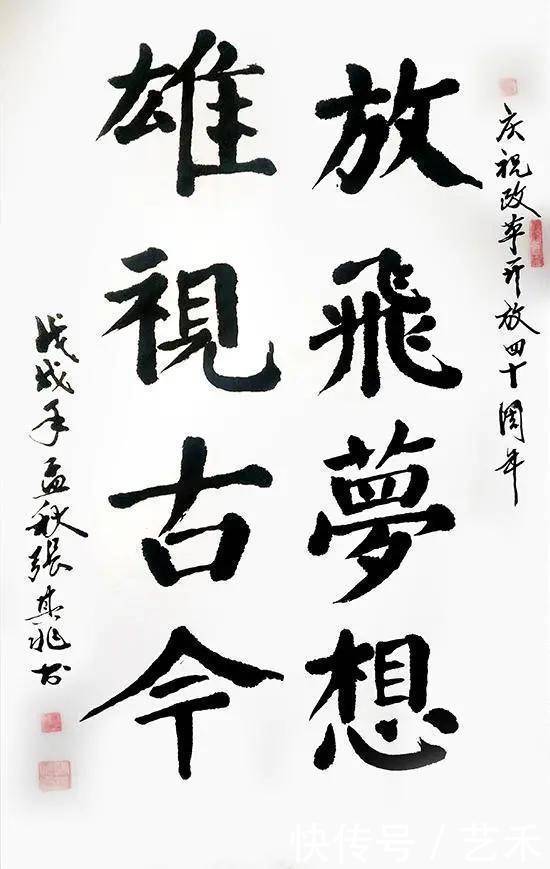 庆祝改革开放四十周年
放飛夢想
雄視古今
戊戌年孟秋張其书
快传号 / 艺禾